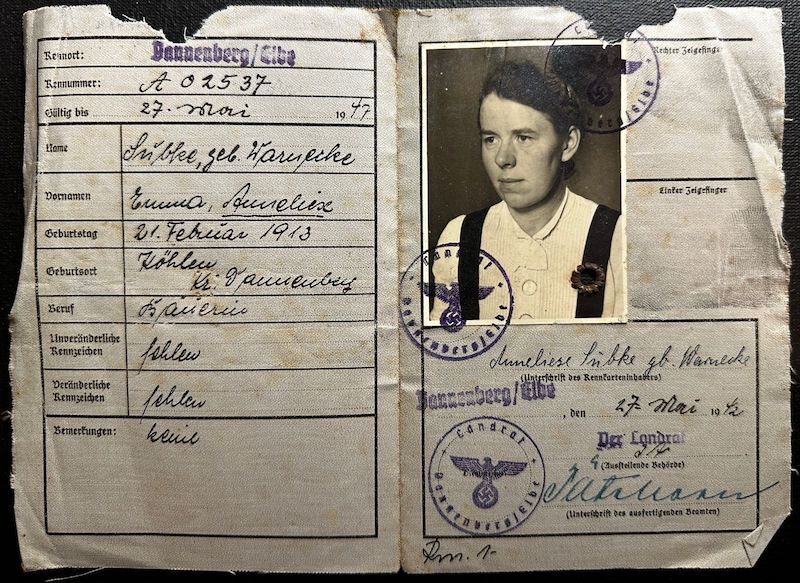 Kennort: Dannenberg/Elbe
Kennummer: A 02537
Gültig bis 27. Mai 1947
Name Lübke, geb. Warnecke
Vornamen Emma, Anneliese
Geburtstag 21. Februar 1913
Geburtsort Köhlen
Kr. Dannenberg
Beruf Bäuerin
Unveränderliche
Kennzeichen fehlen
Veränderliche
Kennzeichen fehlen
Bemerkungen: keine
Rechter Zeigefinger
Linker Zeigefinger
Landrat
Dannenberg/Elbe
Anneliese Lübke gb. Warnecke
(Unterschrift des Kennkarteninhabers)
Dannenberg/Elbe, den 27. Mai 1942
Der Landrat
(Ausstellende Behörde)
(Unterschrift des ausfertigenden Beamten)
Landrat
Dannenberg/Elbe